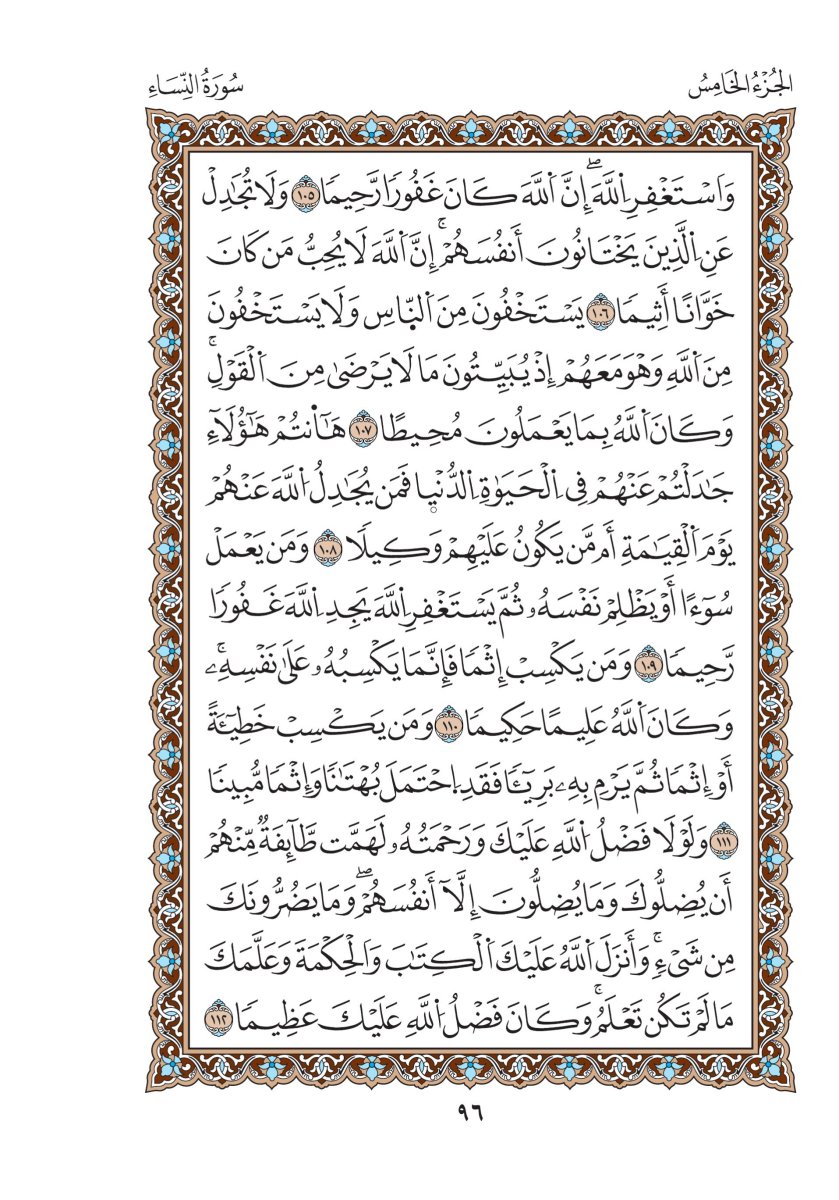 الجُزْءُ الخَامِسُ
سُورَةُ النِّسَاءِ
وَاَسْتَغْفِرِ اِللَّهَۖ إِنَّ اَللَّهَ كَانَ غَفُورٗا رَّحِيمٗا ١٠٥ وَلَا تُجَٰدِلْ
عَنِ اِلَّذِينَ يَخْتَانُونَ أَنفُسَهُمْۚ إِنَّ اَللَّهَ لَا يُحِبُّ مَن كَانَ
خَوَّانًا أَثِيمٗا ١٠٦ يَسْتَخْفُونَ مِنَ اَلنَّاسِ وَلَا يَسْتَخْفُونَ
مِنَ اَللَّهِ وَهْوَ مَعَهُمْ إِذْ يُبَيِّتُونَ مَا لَا يَرْضَىٰ مِنَ اَلْقَوْلِۚ
وَكَانَ اَللَّهُ بِمَا يَعْمَلُونَ مُحِيطًا ١٠٧ هَٰٓأَنتُمْ هَٰٓؤُلَآءِ
جَٰدَلْتُمْ عَنْهُمْ فِي اِلْحَيَوٰةِ اِلدُّنْيۭا فَمَن يُجَٰدِلُ اُللَّهَ عَنْهُمْ
يَوْمَ اَلْقِيَٰمَةِ أَم مَّن يَكُونُ عَلَيْهِمْ وَكِيلٗا ١٠٨ وَمَن يَعْمَلْ
سُوٓءًا أَوْ يَظْلِمْ نَفْسَهُۥ ثُمَّ يَسْتَغْفِرِ اِللَّهَ يَجِدِ اِللَّهَ غَفُورٗا
رَّحِيمٗا ١٠٩ وَمَن يَكْسِبْ إِثْمٗا فَإِنَّمَا يَكْسِبُهُۥ عَلَىٰ نَفْسِهِۦۚ
وَكَانَ اَللَّهُ عَلِيمًا حَكِيمٗا ١١٠ وَمَن يَكْسِبْ خَطِيٓـَٔةً
أَوْ إِثْمٗا ثُمَّ يَرْمِ بِهِۦ بَرِيٓـٔٗا فَقَدِ اِحْتَمَلَ بُهْتَٰنٗا وَإِثْمٗا مُّبِينٗا
١١١ وَلَوْلَا فَضْلُ اُللَّهِ عَلَيْكَ وَرَحْمَتُهُۥ لَهَمَّت طَّآئِفَةٞ مِّنْهُمْ
أَن يُضِلُّوكَ وَمَا يُضِلُّونَ إِلَّآ أَنفُسَهُمْۖ وَمَا يَضُرُّونَكَ
مِن شَيْءٖۚ وَأَنزَلَ اَللَّهُ عَلَيْكَ اَلْكِتَٰبَ وَالْحِكْمَةَ وَعَلَّمَكَ
مَا لَمْ تَكُن تَعْلَمُۚ وَكَانَ فَضْلُ اُللَّهِ عَلَيْكَ عَظِيمٗا ١١٢
٩٦